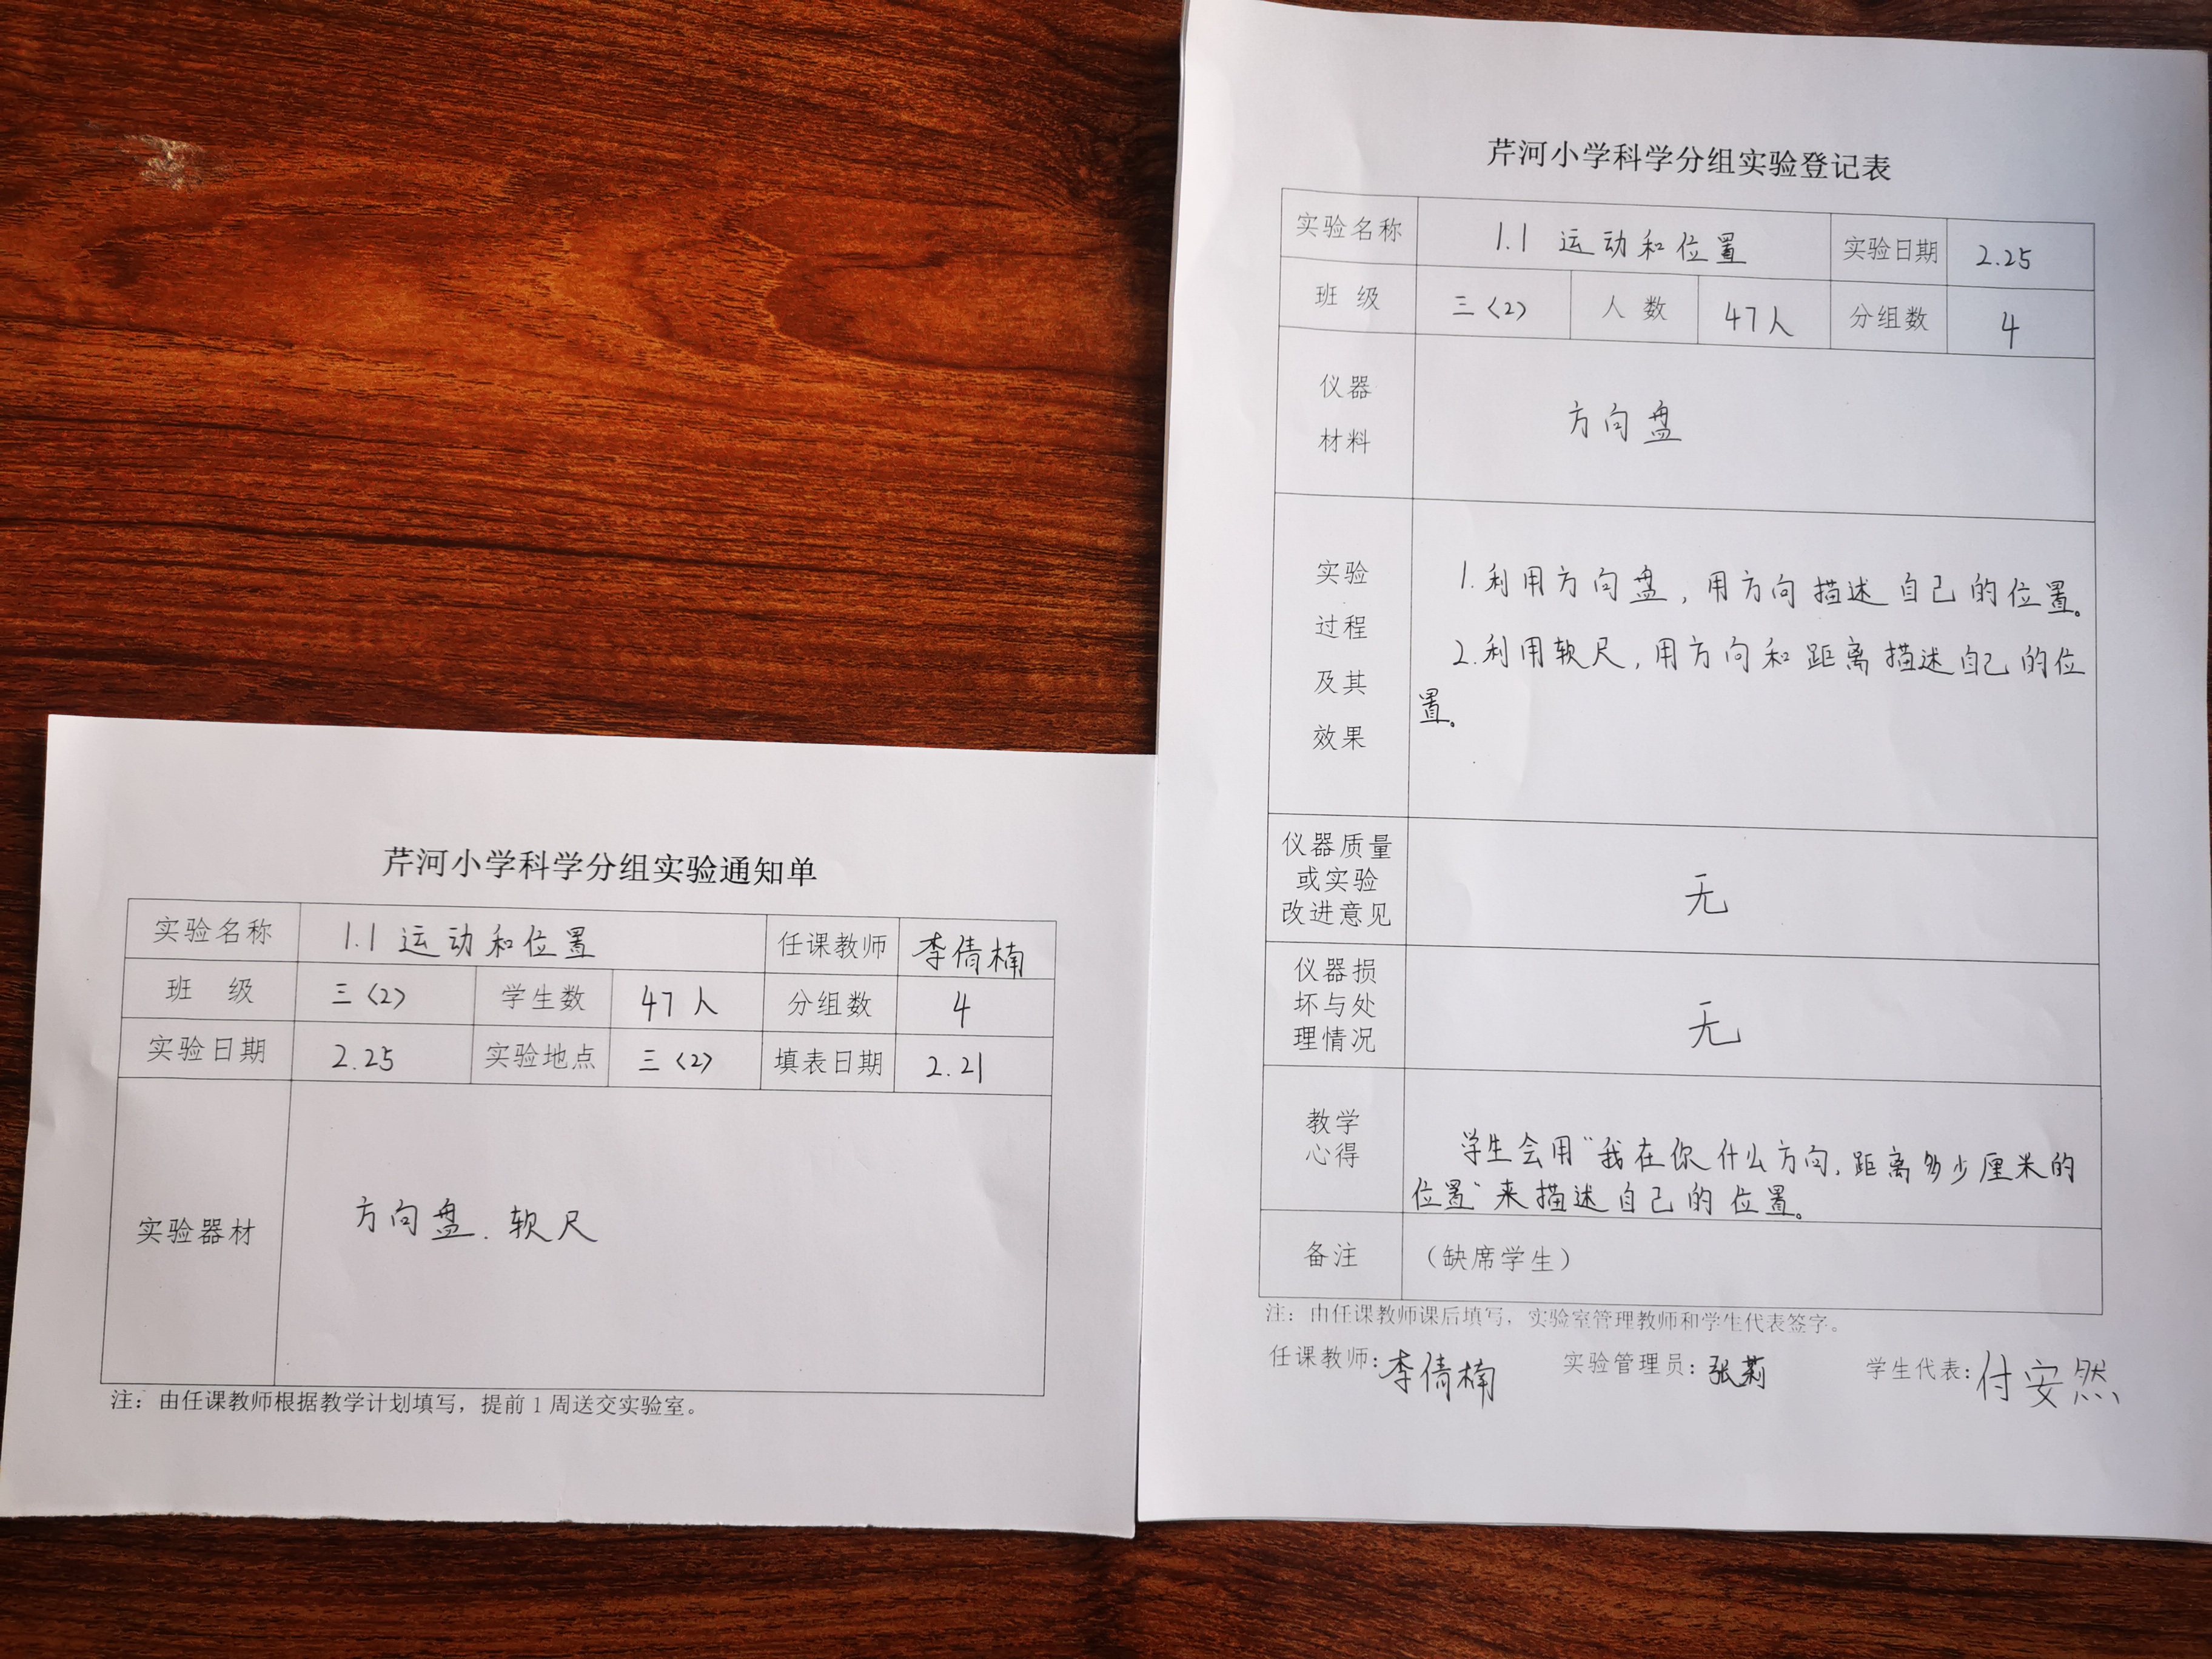 芹河小学科学分组实验通知单
实验名称 1.1 运动和位置 任课教师 李倩楠
班 级 三〈2〉 学生数 47人 分组数 4
实验日期 2.25 实验地点 三〈2〉 填表日期 2.21
实验器材 方向盘、软尺
注：由任课教师根据教学计划填写，提前1周送交实验室。
芹河小学科学分组实验登记表
实验名称 1.1 运动和位置 实验日期 2.25
班 级 三〈2〉 人 数 47人 分组数 4
仪器
材料
方向盘
实验
过程
及其
效果
1.利用方向盘，用方向描述自己的位置。
2.利用软尺，用方向和距离描述自己的位
置。
仪器质量
或实验
改进意见
无
仪器损
坏与处
理情况
无
教学
心得
学生会用“我在你什么方向，距离多少厘米的
位置”来描述自己的位置。
备注 （缺席学生）
注：由任课教师课后填写，实验室管理教师和学生代表签字。
任课教师：李倩楠 实验管理员：张莉 学生代表：付安然